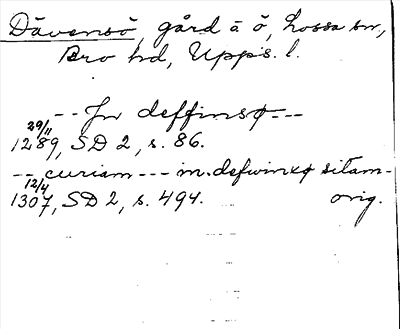 Dävensö, gård å ö, Lossa sn,
Bro hd, Upps. l.
-- Jn deffinsø ---
29/11 1289, SD 2, s. 86.
-- curiam --- in defwinxø sitam -
12/4 1307, SD 2, s. 494. orig.